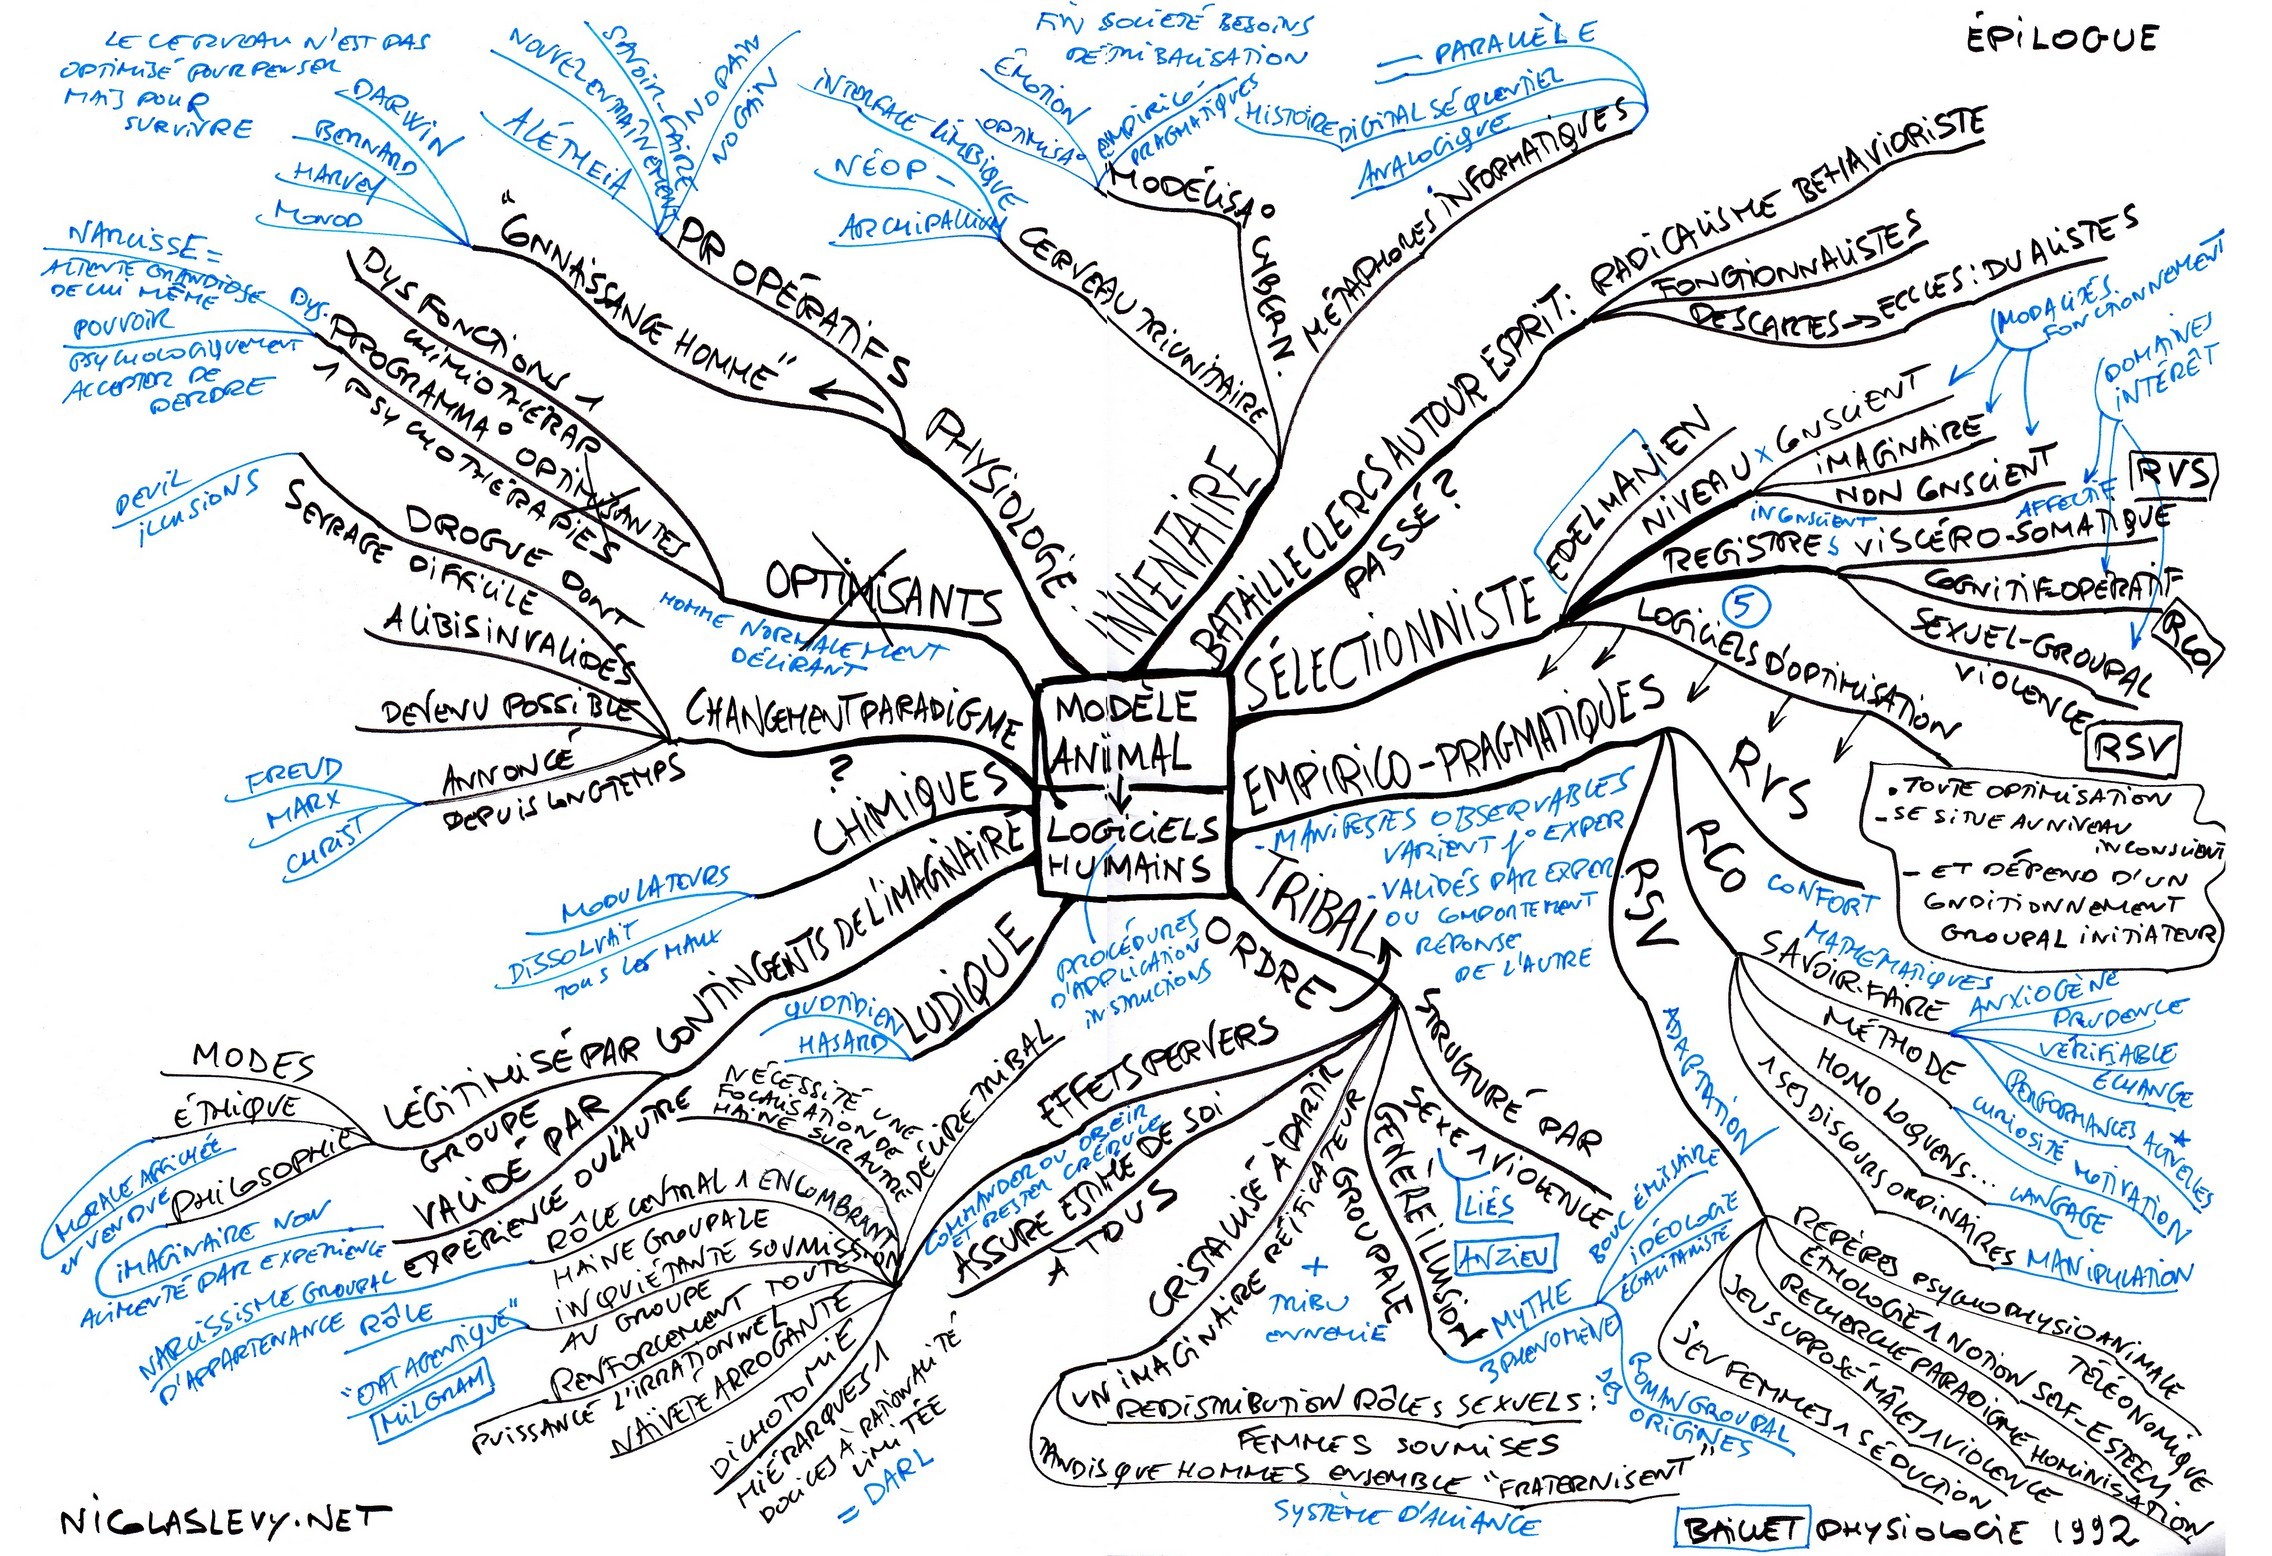 ÉPILOGUE
LE CERVEAU N'EST PAS
OPTIMISÉ POUR PENSER
MAIS POUR
SURVIVRE
DARWIN
BERNARD
HARVEY
MONOD
"CONNAISSANCE HOMME"
ALÉTHEIA
NOUVEL ENTRAÎNEMENT
SAVOIR-FAIRE
NO PAIN
NO GAIN
PR OPÉRATIFS
PHYSIOLOGIE
INTERFACE LIMBIQUE
NÉOP-
ARCHIPALLIUM
CERVEAU TRIUNITAIRE
FIN SOCIÉTÉ BESOINS
DÉTRIBALISATION
ÉMOTION
OPTIMISA°
EMPIRICO-
PRAGMATIQUES
MODÉLISA°
CYBERN.
HISTOIRE
PARALLÈLE
DIGITAL SÉQUENTIEL
ANALOGIQUE
MÉTAPHORES INFORMATIQUES
INVENTAIRE
BATAILLE CLERCS AUTOUR ESPRIT:
PASSÉ?
RADICALISME BEHAVIORISTE
FONCTIONNALISTES
DESCARTES → ECCLES: DUALISTES
SÉLECTIONNISTE
EDELMANIEN
NIVEAUX
CONSCIENT
IMAGINAIRE
NON CONSCIENT
INCONSCIENT
MODALITÉS
FONCTIONNEMENT
DOMAINES
INTÉRÊT
AFFECTIF
RVS
REGISTRES
VISCÉRO-SOMATIQUE
COGNITIF-OPÉRATIF
RCO
SEXUEL-GROUPAL
VIOLENCE
RSV
5
LOGICIELS D'OPTIMISATION
. TOUTE OPTIMISATION
- SE SITUE AU NIVEAU
INCONSCIENT
- ET DÉPEND D'UN
CONDITIONNEMENT
GROUPAL INITIATEUR
MODÈLE
ANIMAL
LOGICIELS
HUMAINS
PROCÉDURES
D'APPLICATION
INSTRUCTIONS
EMPIRICO-PRAGMATIQUES
- MANIFESTES OBSERVABLES
VARIENT f° EXPER
- VALIDÉS PAR EXPER.
OU COMPORTEMENT
RÉPONSE
DE L'AUTRE
RVS
CONFORT
RCO
SAVOIR-FAIRE
MATHÉMATIQUES
ANXIOGÈNE
PRUDENCE
VÉRIFIABLE
ÉCHANGE
PERFORMANCES ACTUELLES
MÉTHODE
CURIOSITÉ MOTIVATION
HOMO LOQUENS...
LANGAGE
1 SES DISCOURS ORDINAIRES
MANIPULATION
RSV
ADAPTATION
REPÈRES PSYCHOPHYSIO ANIMALE
TÉLÉONOMIQUE
ÉTHOLOGIE 1 NOTION SELF-ESTEEM
RECHERCHE PARADIGME HOMINISATION
JEU SUPPOSÉ MÂLES 1 VIOLENCE
JEU FEMMES 1 SÉDUCTION
TRIBAL
ORDRE
STRUCTURÉ PAR
SEXE 1 VIOLENCE
LIÉS
GÉNÈRE ILLUSION
GROUPALE
ANZIEU
MYTHE
3 PHENOMÈNE
BOUC ÉMISSAIRE
IDÉOLOGIE
ÉGALITARISTE
ROMAN GROUPAL
DES ORIGINES
+
TRIBU
ENNEMIE
CRISTALLISÉ À PARTIR
UN IMAGINAIRE RÉIFICATEUR
REDISTRIBUTION RÔLES SEXUELS:
FEMMES SOUMISES
TANDIS QUE HOMMES ENSEMBLE "FRATERNISENT"
SYSTÈME D'ALLIANCE
ASSURE ESTIME DE SOI
À TOUS
EFFETS PERVERS
COMMANDER OU OBÉIR
ET RESTER CRÉDULE
DÉLIRE TRIBAL
NÉCESSITÉ UNE
FOCALISATION DE
HAINE SUR AUTRE
RÔLE CENTRAL 1 ENCOMBRANT
HAINE GROUPALE
INQUIÉTANTE SOUMISSION
AU GROUPE
RENFORCEMENT TOUTE
PUISSANCE L'IRRATIONNEL
NAÏVETÉ ARROGANTE
DICHOTOMIE
HIÉRARQUES 1
DOCILES À RATIONALITÉ
LIMITÉE
= DARL
NARCISSISME GROUPAL
D'APPARTENANCE
RÔLE
"ETAT AGENTIQUE"
MILGRAM
LUDIQUE
QUOTIDIEN
HASARD
CONTINGENTS DE L'IMAGINAIRE
LÉGITIMISÉ PAR
GROUPE
MODES
ÉTHIQUE
PHILOSOPHIE
MORALE AFFICHÉE
VALIDÉ PAR
EXPÉRIENCE OU L'AUTRE
IMAGINAIRE NON
ALIMENTÉ PAR EXPERIENCE
CHIMIQUES
MODULATEURS
DISSOLVAIT
TOUS LES MAUX
CHANGEMENT PARADIGME
?
DROGUE DONT
SEVRAGE DIFFICILE
DEUIL
ILLUSIONS
ALIBIS INVALIDÉS
DEVENU POSSIBLE
ANNONCÉ
DEPUIS LONGTEMPS
FREUD
MARX
CHRIST
OPTIMISANTS
HOMME NORMALEMENT
DÉLIRANT
DYSFONCTIONS 1
CHIMIOTHÉRAP
DYS.
PROGRAMMA° OPTIMISANTES
1 PSYCHOTHÉRAPIES
NARCISSE =
ATTENTE GRANDIOSE
DE LUI MÊME
POUVOIR
PSYCHOLOGIQUEMENT
ACCEPTER DE
PERDRE
NICOLASLEVY.NET
BAILLET PHYSIOLOGIE 1992